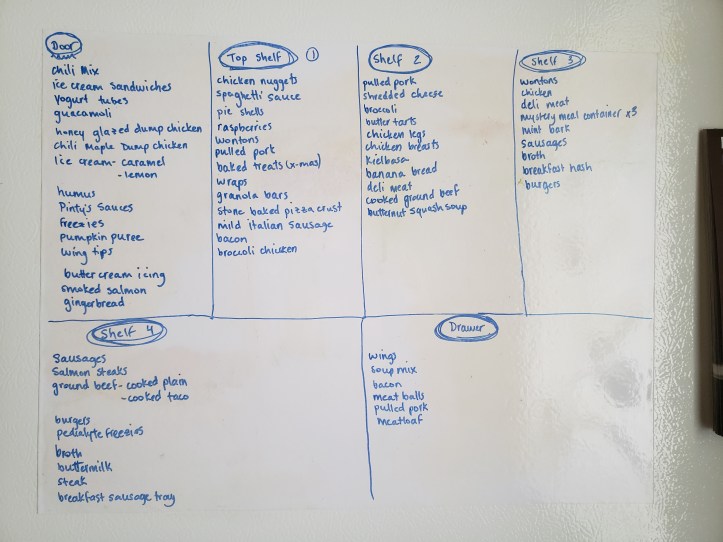 Door
chili Mix
ice cream Sandwiches
Yogurt tubes
guacamoli
honey glazed dump chicken
Chili Maple Dump chicken
Iice cream- caramel
- lemon
humus
Pinty's Sauces
freezies
pumpkin puree
wing tips
butter cream icing
smoked salmon
gingerbread
Top Shelf 1
chicken nuggets
spaghetti sauce
pie shells
raspberries
wontons
pulled pork
baked treats (x-mas)
wraps
granola bars
stone baked pizza crust
mild italian sausage
bacon
broccoli chicken
Shelf 2
pulled pork
shredded cheese
broccoli
butter tarts
chicken legs
chicken breasts
kielbasa
banana bread
deli meat
cooked ground beef
butternut squash soup
Shelf 3
wontons
chicken
deli meat
mystery meal container x3
mint bark
sausages
broth
breakfast hash
burgers
Shelf 4
Sausages
Salmon steaks
ground beef- cooked plain
- cooked taco
burgers
pedialyte freezies
broth
buttermilk
steak
breakfast sausage tray
Drawer
wings
soup mix
bacon
meat balls
pulled pork
meatloaf